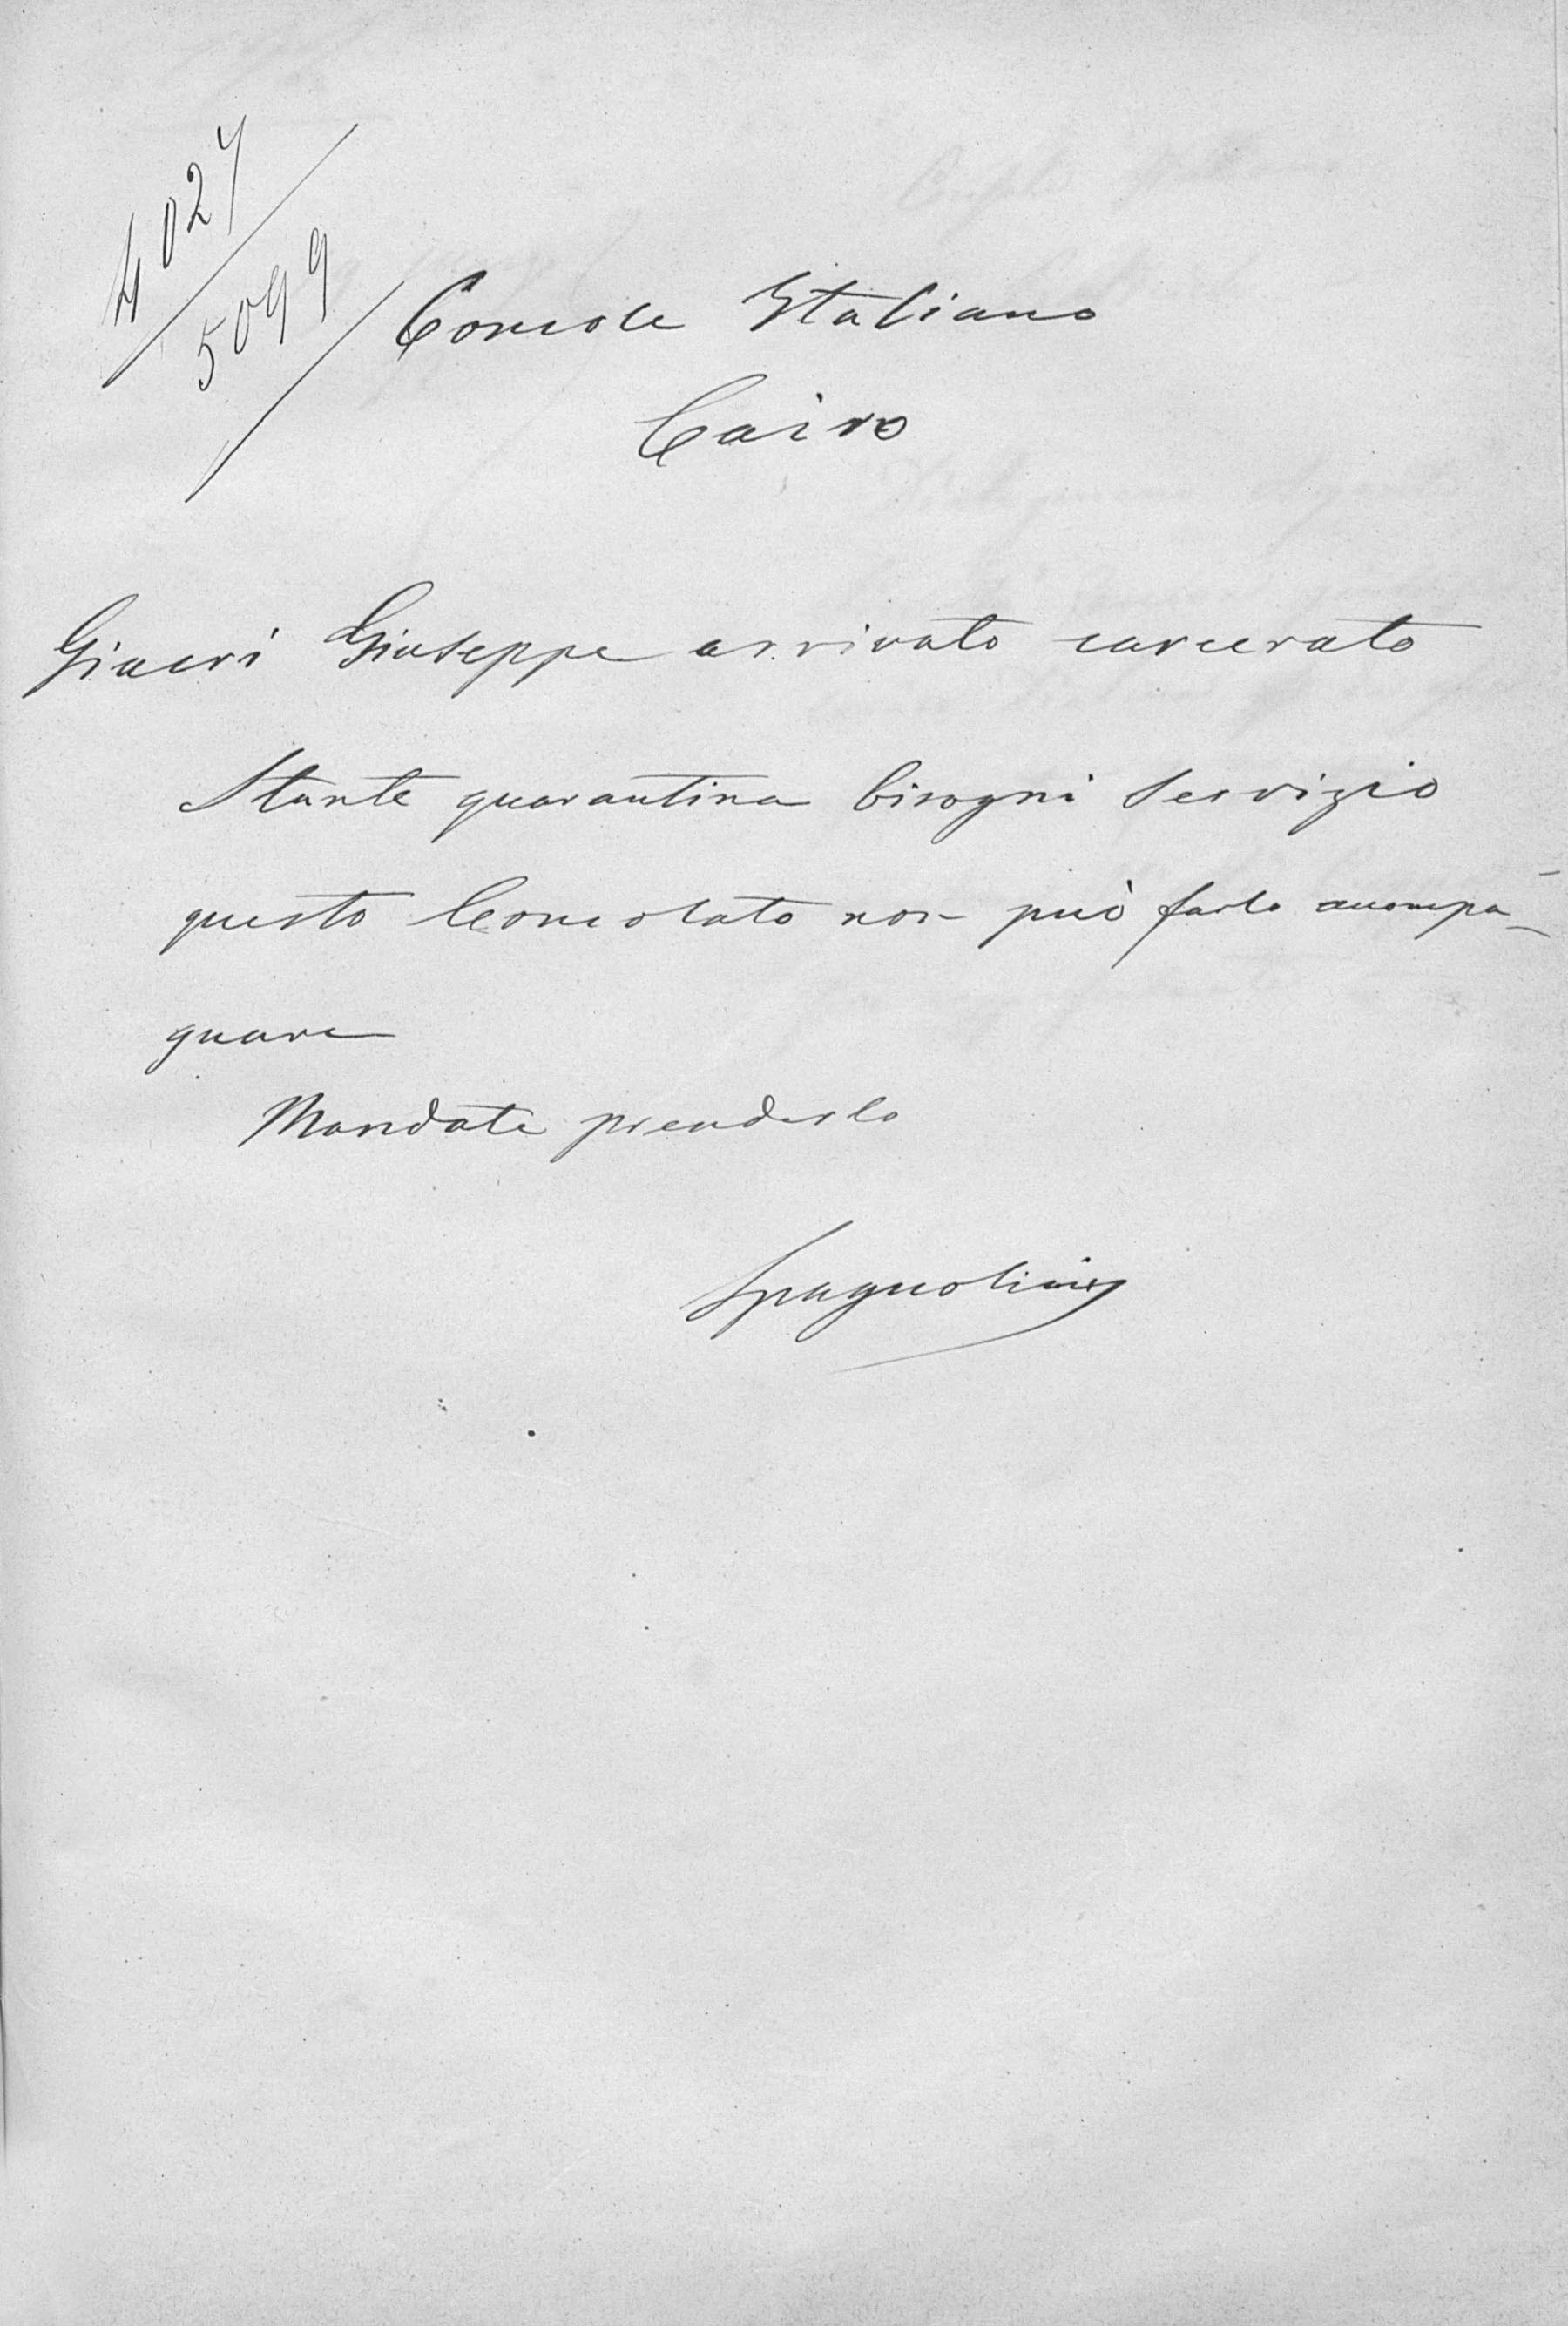 4027
5099
Console Italiano
Cairo
Giuseppe arrivato carcerato
Stante quarantina bisogni servizio
questo Consolato non può farlo accompa-
gnare
Mandate prenderlo
Spagnolini